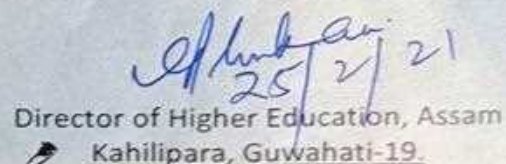 25/2/21
Director of Higher Education, Assam
Kahilipara, Guwahati-19.